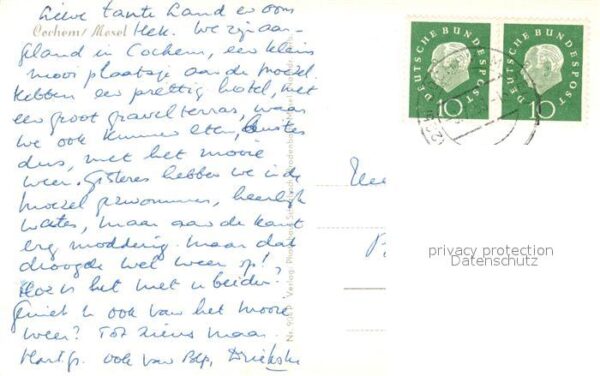 Lieve tante Land en oom
Cochem/Mosel
Hek. We zijn aan-
geland in Cochem, een klein
mooi plaatsje aan de Moezel.
Hebben een prettig hotel, met
een groot gravelterras, waar
we ook kunnen eten, buiten
dus, met het mooie
weer. Gisteren hebben we in de
Moezel gezwommen, heerlijk
water, maar aan de kant
erg modderig. Maar dat
droogde wel weer op!
Hoe is het met u beiden?
Geniet u ook van het mooie
weer? Tot ziens maar.
Hartgr. ook van
DEUTSCHE BUNDESPOST
10
DEUTSCHE BUNDESPOST
10
privacy protection
Datenschutz